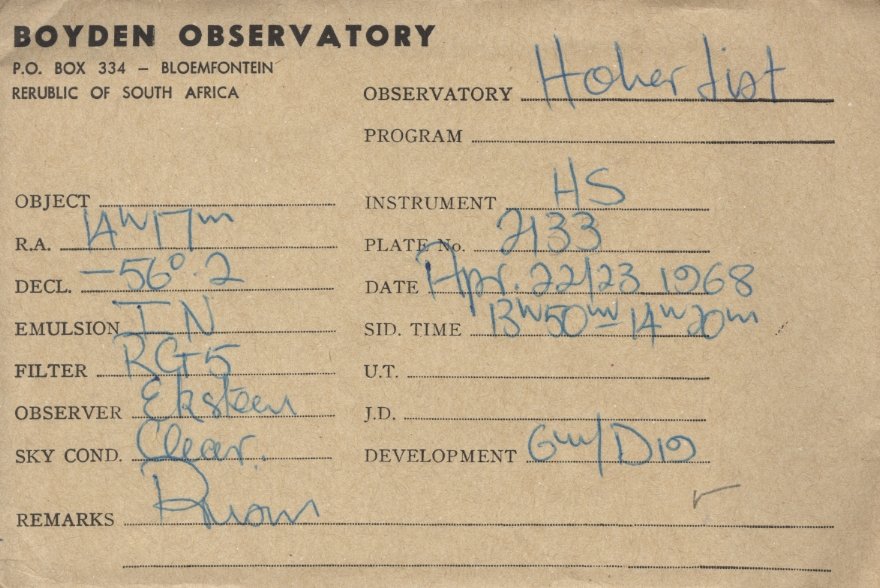 BOYDEN OBSERVATORY
P.O. BOX 334 – BLOEMFONTEIN
RERUBLIC OF SOUTH AFRICA
OBSERVATORY Hoher List
PROGRAM
OBJECT
INSTRUMENT HS
R.A. 14h 17m
PLATE No. 2133
DECL. -56°.2
DATE Apr. 22/23 1968
EMULSION I N
SID. TIME 13h50m – 14h20m
FILTER RG5
U.T.
OBSERVER Eksteen
J.D.
SKY COND. Clear.
DEVELOPMENT 6m/D19
REMARKS